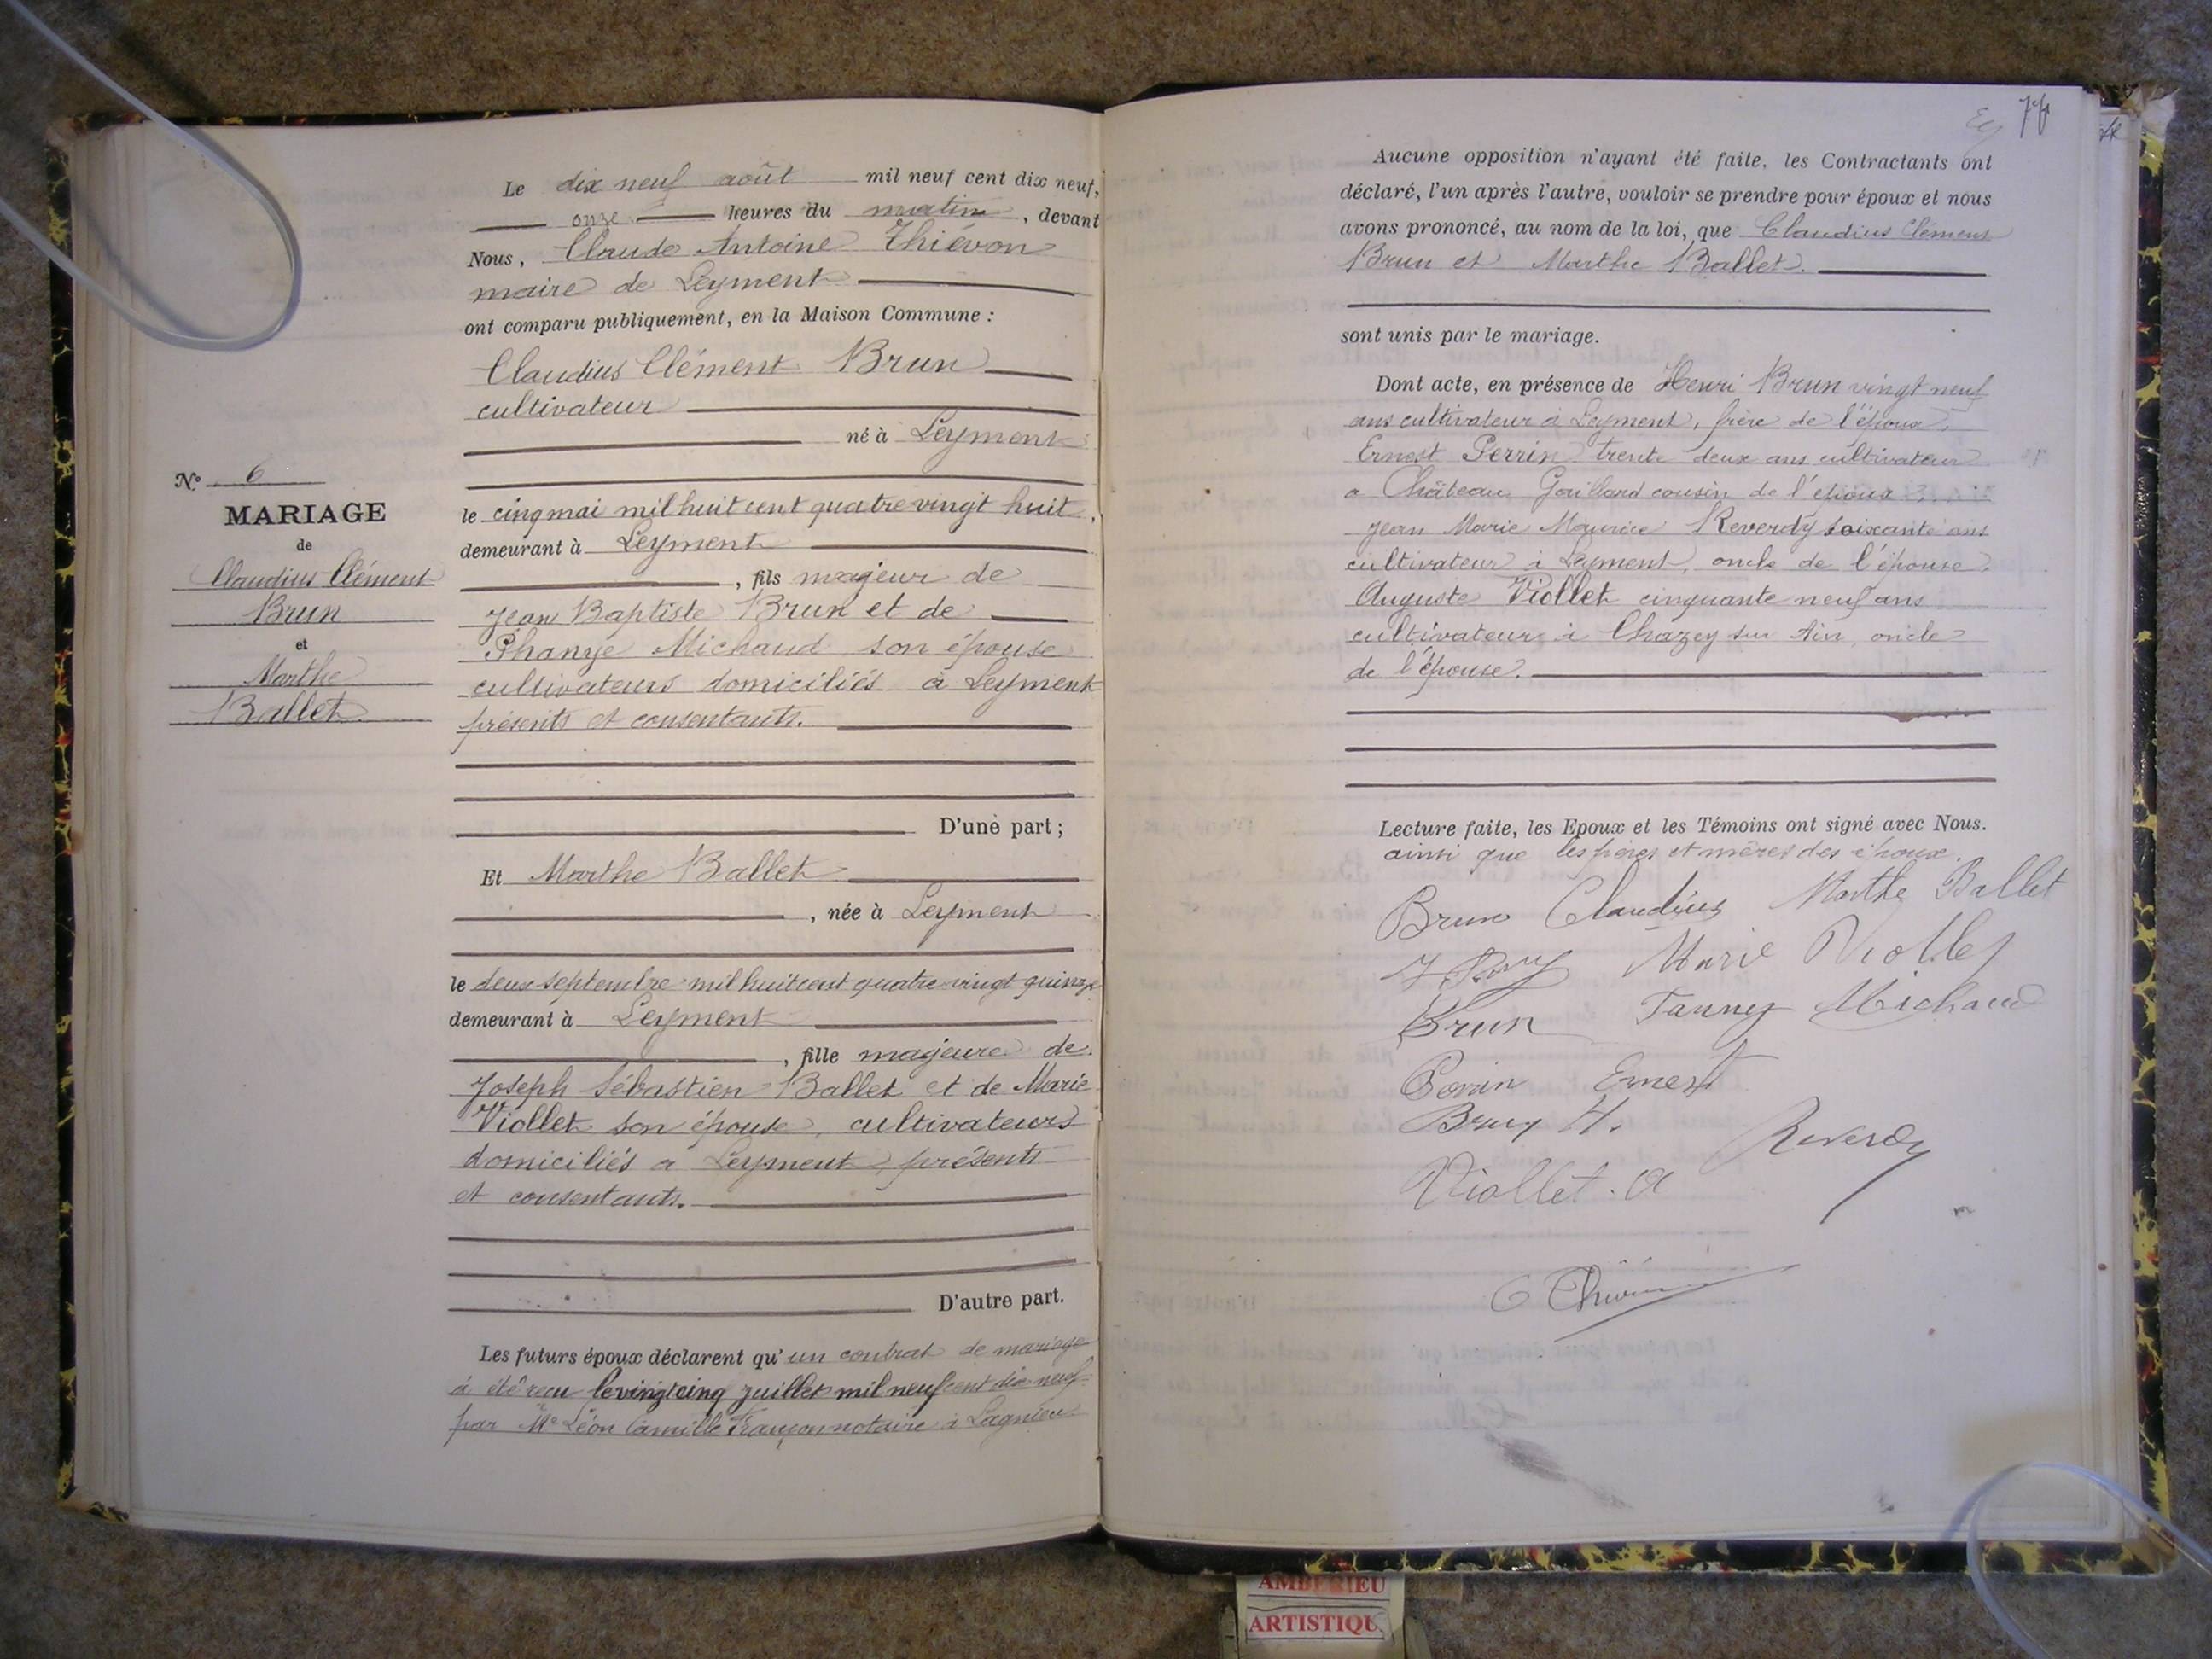 Le dix neuf août mil neuf cent dix neuf,
onze heures du matin, devant
Nous, Claude Antoine Thiévon
maire de Leyment
ont comparu publiquement, en la Maison Commune :
Claudius Clément Brun
cultivateur
né à Leyment
le cinq mai mil huit cent quatre vingt huit,
demeurant à Leyment
, fils majeur de
Jean Baptiste Brun et de
Phanye Michaud son épouse
cultivateurs domiciliés à Leyment
présents et consentants.
D'une part ;
Et Marthe Ballet
, née à Leyment
le deux septembre mil huit cent quatre vingt quinze
demeurant à Leyment
, fille majeure de
Joseph Sébastien Ballet et de Marie
Viollet son épouse, cultivateurs
domiciliés à Leyment, présents
et consentants.
D'autre part.
Les futurs époux déclarent qu'un contrat de mariage
à été reçu le vingt cinq juillet mil neuf cent dix neuf
par Me Léon Camille Françon notaire à Lagnieu
N° 6
MARIAGE
de
Claudius Clément
Brun
et
Marthe
Ballet
Aucune opposition n'ayant été faite, les Contractants ont
déclaré, l'un après l'autre, vouloir se prendre pour époux et nous
avons prononcé, au nom de la loi, que Claudius Clément
Brun et Marthe Ballet.
sont unis par le mariage.
Dont acte, en présence de Henri Brun vingt neuf
ans cultivateur à Leyment, frère de l'époux,
Ernest Perrin trente deux ans cultivateur
a Château Gaillard cousin de l'époux
Jean Marie Maurice Reverdy soixante ans
cultivateur à Leyment, oncle de l'épouse
Auguste Viollet cinquante neuf ans
cultivateur à Chazey sur Ain, oncle
de l'épouse.
Lecture faite, les Epoux et les Témoins ont signé avec Nous.
ainsi que les pères et mères des époux.
Brun Claudius Marthe Ballet
Marie Viollet
Brun Fanny Michaud
Perrin Ernest
Brun H.
Reverdy
Viollet. A
C Thiévon
AMBERIEU
ARTISTIQU